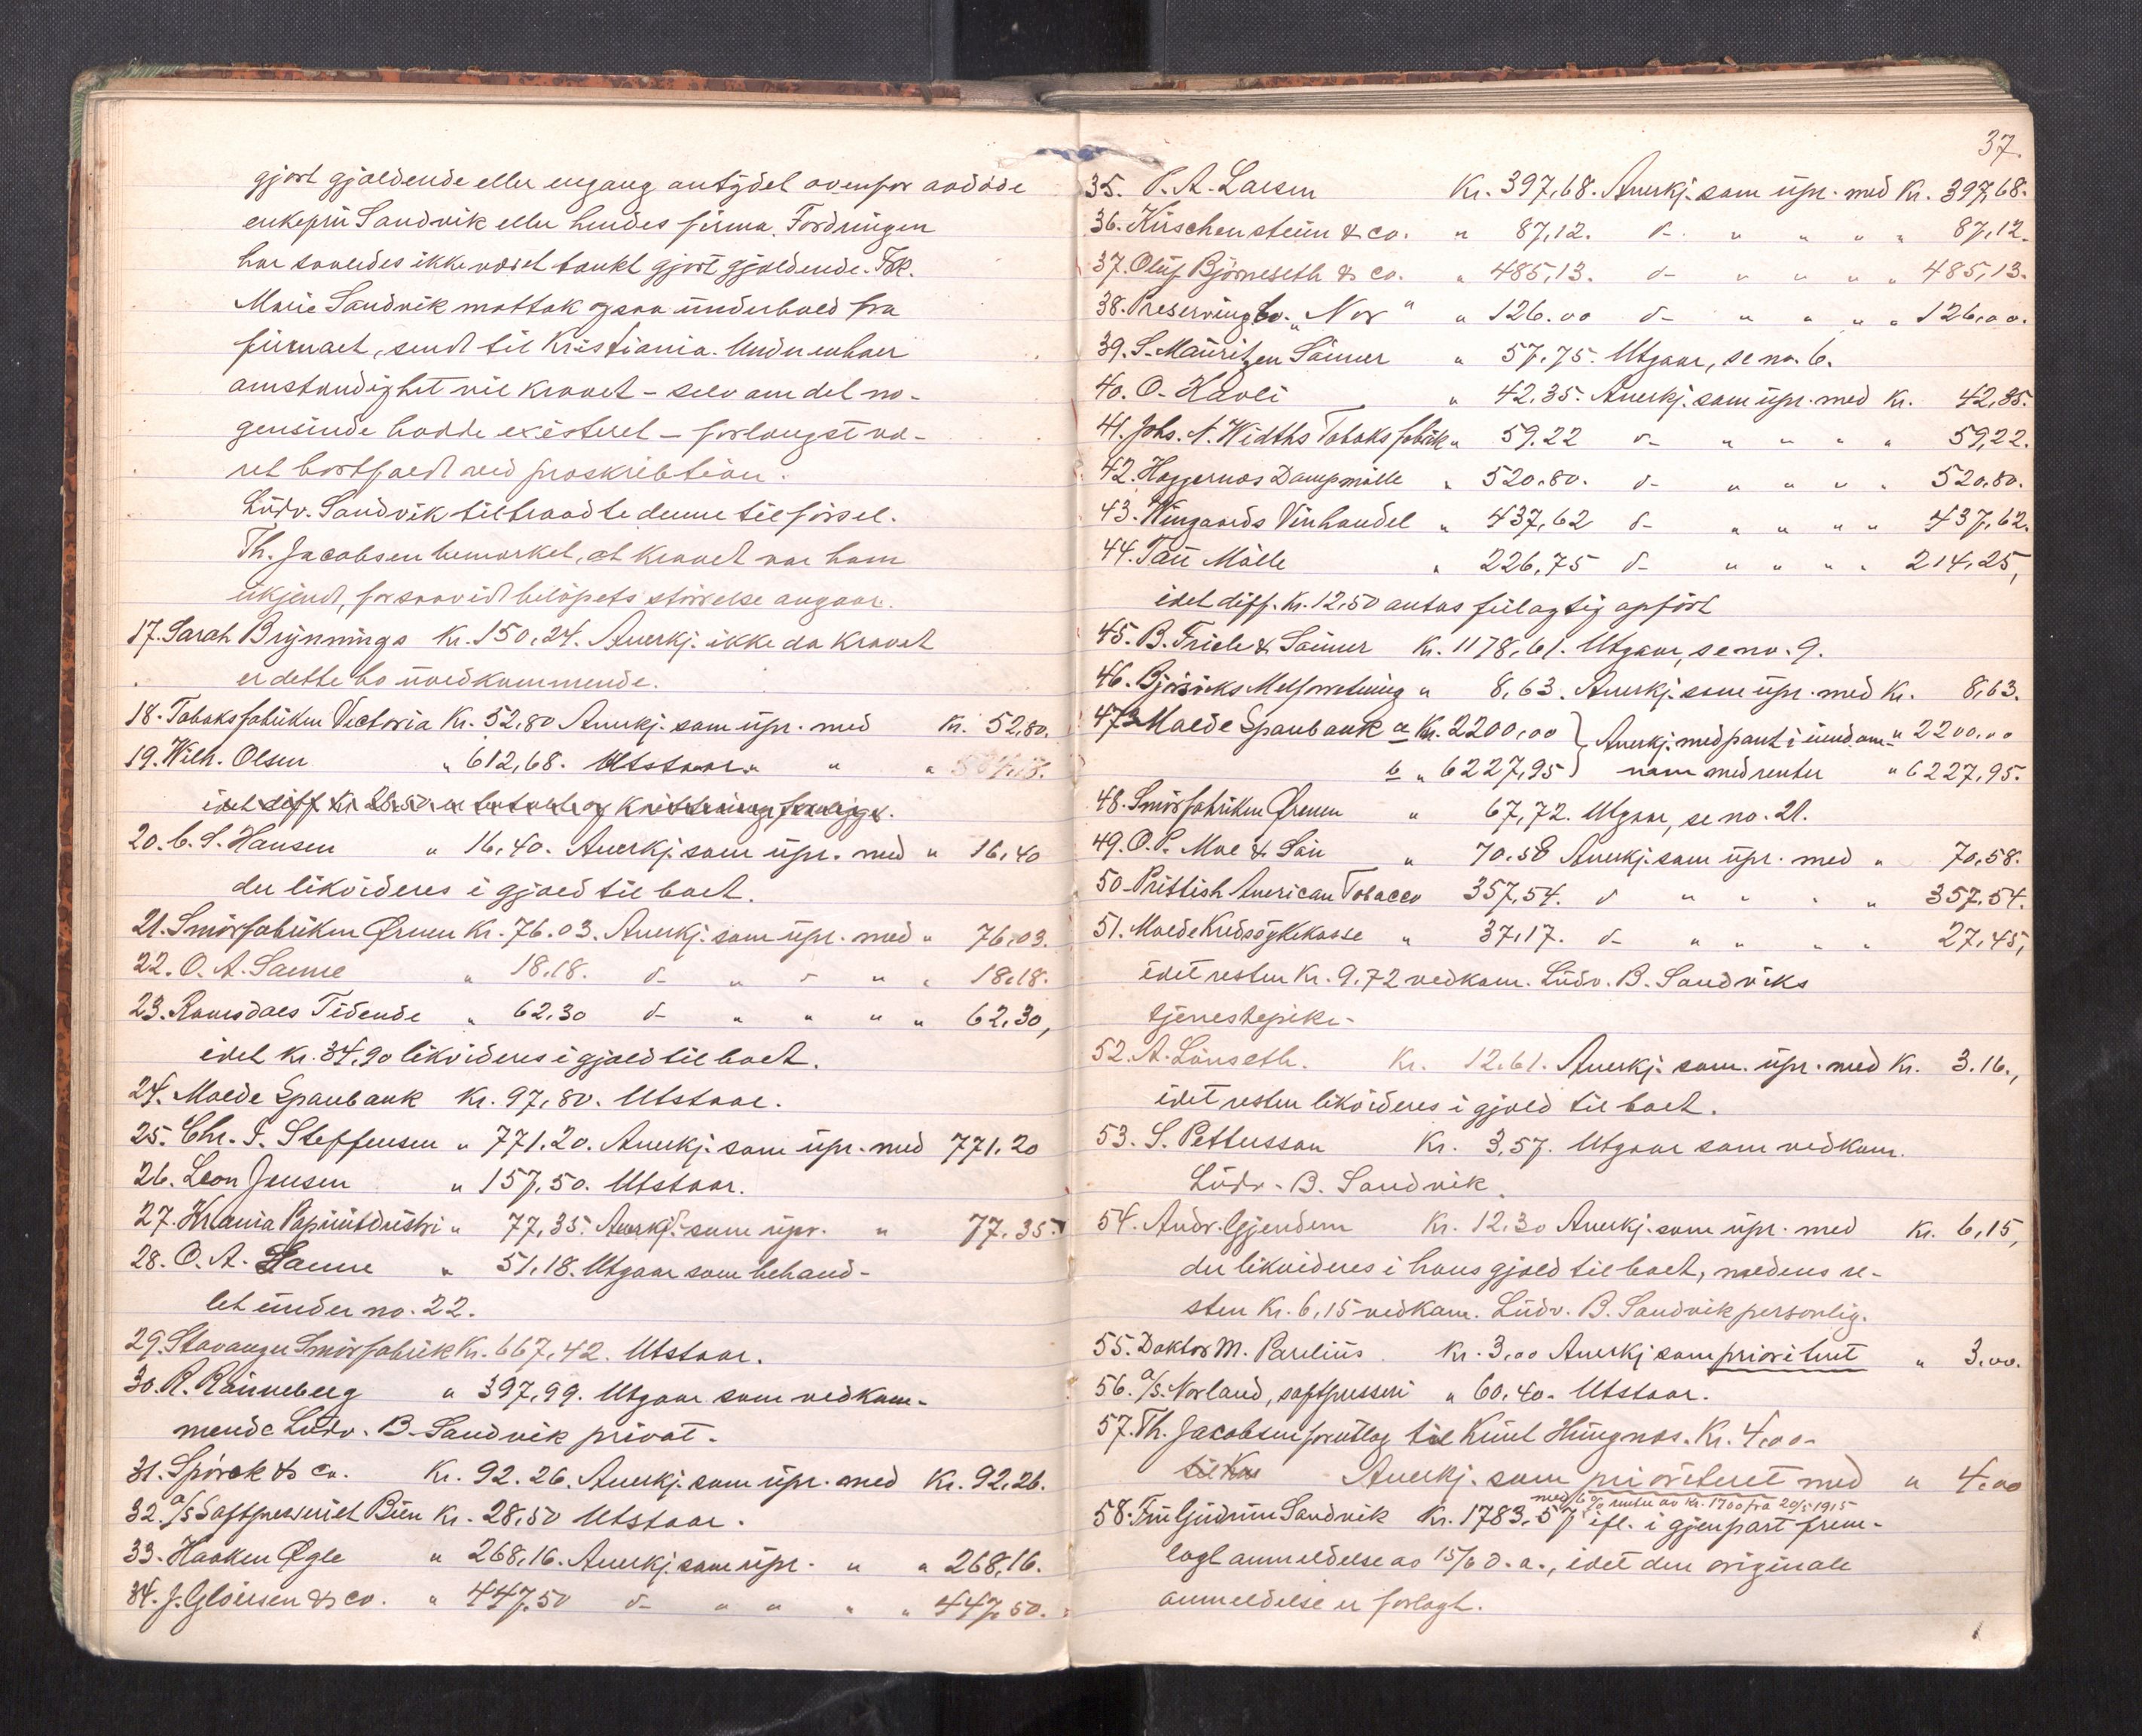 gjort gjældende eller engang antydet ovenfor avdøde
enkefru Sandvik eller hendes firma. Fordringen
har saaledes ikke været tænkt gjort gjældende. Frk.
Marie Sandvik mottok ogsaa underhold fra
firmaet, sendt til Kristiania. Under enhver
omstændighet vil kravet – selv om det no-
gensinde hadde existeret – forlængst væ-
ret bortfaldt ved proskribtion.
Ludv. Sandvik tiltraadte denne tilførsel.
Th. Jacobsen bemerket, at kravet var ham
ukjendt, forsaavidt beløpets størrelse angaar.
17. Sarah Brynnings Kr. 150,24. Anerkj. ikke da kravet
er dette bo uvedkommende.
18. Tobaksfabriken Victoria Kr. 52,80 Anerkj. som upr. med Kr. 52,80.
19. Wilh. Olsen " 612,68. Utstaar. " "
idet diff. Kr.
20. C. S. Hansen " 16,40. Anerkj. som upr. med " 16,40
der likvideres i gjæld til boet.
21. Smørfabriken Ørnen Kr. 76.03. Anerkj. som upr. med " 76,03.
22. O. A. Sanne " 18,18. d- " " " " 18,18.
23. Romsdals Tidende " 62.30 d- " " " " 62,30,
idet kr. 34,90 likvideres i gjæld til boet.
24. Molde Sparebank Kr. 97,80. Utstaar.
25. Chr. F. Steffensen " 771.20. Anerkj. som upr. med 771,20
26. Leon Jensen " 157,50. Utstaar.
27. Kr.ania Papirindustri " 77,35. Anerkj. som upr. " 77.35.
28. O. A. Sanne " 51,18. Utgaar som behand-
let under no. 22.
29. Stavanger Smørfabrik Kr. 667,42. Utstaar.
30. R. Rønneberg " 397,99. Utgaar som vedkom-
mende Ludv. B. Sandvik privat.
31. Spørck & Co. Kr. 92.26. Anerkj. som upr. med Kr. 92,26.
32. a/s Saftpresseriet Bien Kr. 28,50 Utstaar.
33. Haaken Øgle " 268,16. Anerkj. som upr. " " 268,16.
34. J. Gløersen & Co. " 447,50 d- " " " " 447,50.
37.
35. P. A. Larsen Kr. 397,68. Anerkj. som upr. med Kr. 397,68.
36. Kirschenstein & Co. " 87,12. d- " " " " 87,12.
37. Oluf Bjørneseth & Co. " 485,13. d- " " " " 485,13.
38. Preserving Co. "Nor" " 126.00 d- " " " " 126,00.
39. S. Mauritzen Sønner " 57,75. Utgaar, se no. 6.
40. O. Havli " 42,35. Anerkj. som upr. med Kr. 42,35.
41. Johs. N. Widths Tobaksfabrik " 59.22 d- " " " " 59,22.
42. Haggernæs Dampmølle " 520.80. d- " " " " 520,80.
43. Wingaards Vinhandel " 437,62 d- " " " " 437,62.
44. Tau Mølle " 226,75 d- " " " " 214,25,
idet diff. Kr. 12,50 antas feilagtig opført
45. B. Friele & Sønner Kr. 1178,61. Utgaar, se no. 9.
46. Bjørsviks Melforretning " 8,63. Anerkj. som upr. med Kr. 8,63.
47. Molde Sparebank a Kr. 2200,00 } Anerkj. med pant i eiendom- " 2200,00
b " 6227,95 } men med renter " 6227,95.
48. Smørfabriken Ørnen " 67,72. Utgaar, se no. 21.
49. O. P. Moe & Søn " 70.58 Anerkj. som upr. med " 70,58.
50. Brittish American Tobacco 357,54. d " " " " 357,54.
51. Molde Kredssykekasse " 37,17. d- " " " " 27,45,
idet resten Kr. 9,72 vedkom. Ludv. B. Sandviks
tjenestepike.
52. A. Lønseth. Kr. 12.61. Anerkj. som. upr. med Kr. 3.16.,
idet resten likvideres i gjæld til boet.
53. S. Pettersson Kr. 3,57. Utgaar som vedkom.
Ludv. B. Sandvik.
54. Andr. Gjendem Kr. 12.30 Anerkj. som upr. med Kr. 6,15,
der likvideres i hans gjæld til boet, medens re-
sten Kr. 6,15 vedkom. Ludv. B. Sandvik personlig.
55. Doktor M. Parelius Kr. 3,00 Anerkj som prioritert " 3,00.
56. a/s. Norland, saftpresseri " 60,40. Utstaar.
57. Th. Jacobsen for utlæg til Knut Hungnæs. Kr. 4,00.
Anerkj. som prioriteret med " 4,00
med 6% renter av kr. 1700 fra 20/5 1915
58. Fru Gudrun Sandvik Kr. 1783.57 ifl. i gjenpart frem-
lagt anmeldelse av 15/6 d.a., idet den originale
anmeldelse er forlagt.